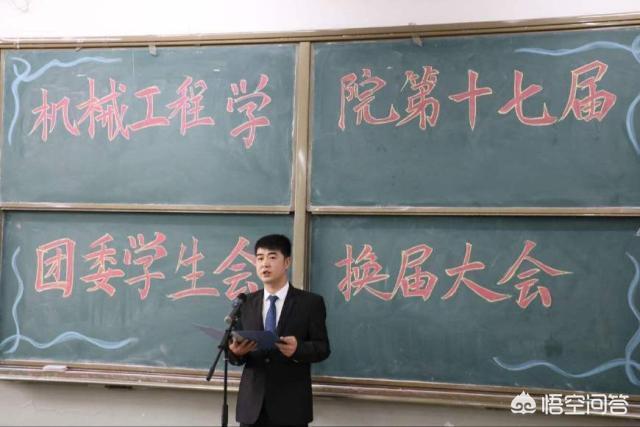 机械工程学院第十七届
团委学生会换届大会
悟空问答